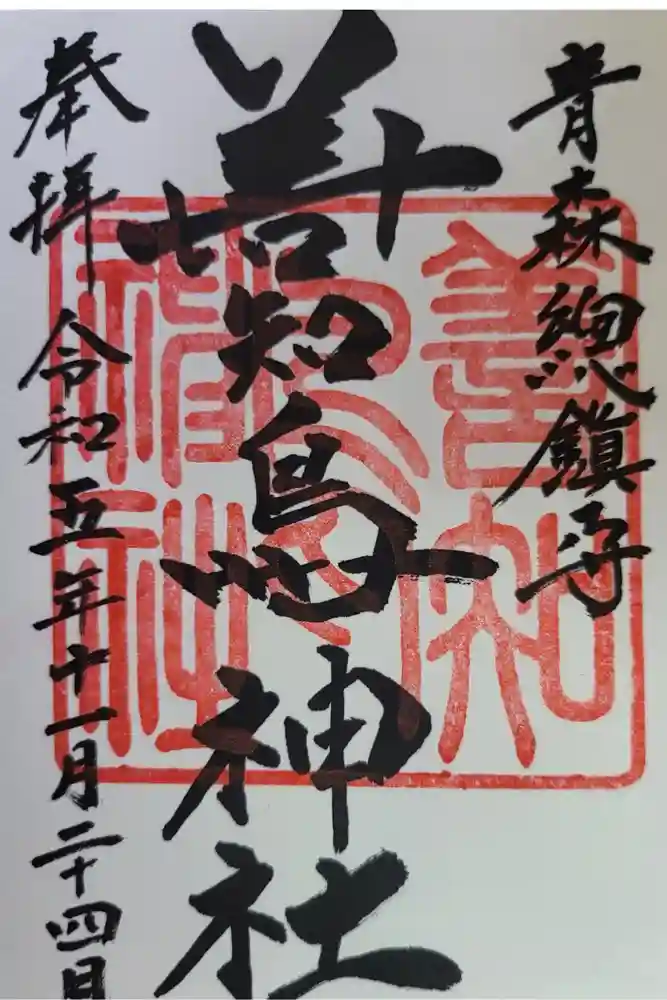 青森總鎮守
善知鳥神社
奉拝 令和五年十一月二十四日
善知
鳥
神社